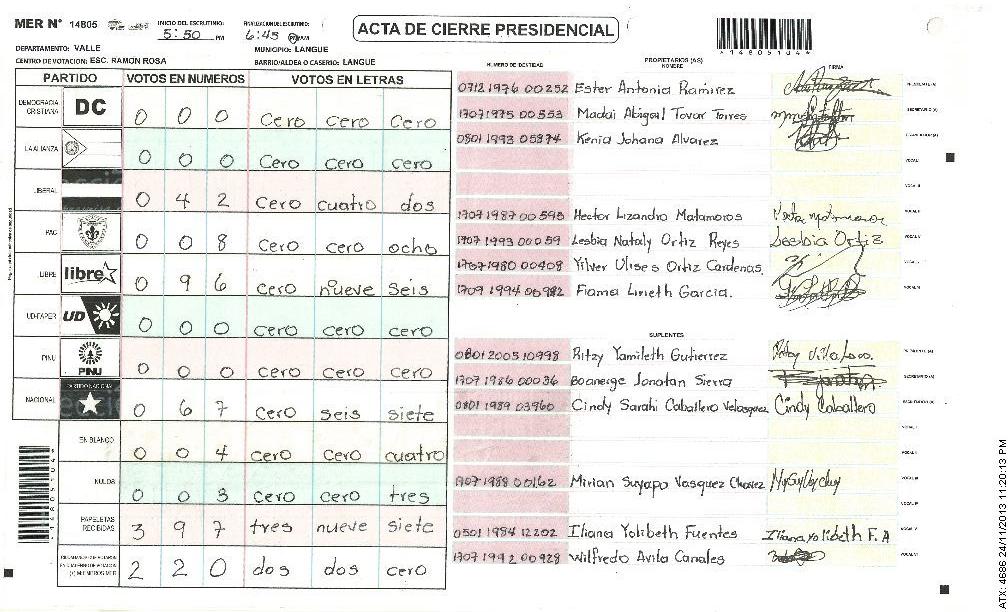 MER N° 14805
INICIO DEL ESCRUTINIO: 5:50 PM
FINALIZACION DEL ESCRUTINIO: 6:45
ACTA DE CIERRE PRESIDENCIAL
*14805104*
DEPARTAMENTO: VALLE
MUNICIPIO: LANGUE
CENTRO DE VOTACION: ESC. RAMON ROSA
BARRIO/ALDEA O CASERIO: LANGUE
PARTIDO VOTOS EN NUMEROS VOTOS EN LETRAS
DEMOCRACIA CRISTIANA DC 0 0 0 cero cero cero
LA ALIANZA 0 0 0 cero cero cero
LIBERAL 0 4 2 cero cuatro dos
PAC 0 0 8 cero cero ocho
LIBRE libre 0 9 6 cero nueve seis
UD-FAPER UD 0 0 0 cero cero cero
PINU PINU 0 0 0 cero cero cero
NACIONAL PARTIDO NACIONAL 0 6 7 cero seis siete
EN BLANCO 0 0 4 cero cero cuatro
NULOS 0 0 3 cero cero tres
PAPELETAS RECIBIDAS 3 9 7 tres nueve siete
2 2 0 dos dos cero
NUMERO DE IDENTIDAD PROPIETARIOS (AS) NOMBRE FIRMA
0712 1976 00252 Ester Antonia Ramirez
1707 1975 00553 Madai Abigail Tovar Torres
0801 1993 05874 Kenia Johana Alvarez
1707 1987 00595 Hector Lizandro Matamoros
1707 1993 00059 Lesbia Nataly Ortiz Reyes Lesbia Ortiz
1707 1980 00408 Yilver Ulises Ortiz Cardenas
1709 1994 00982 Fiama Lineth Garcia.
SUPLENTES
0801 2005 10998 Ritzy Yamileth Gutierrez
1707 1986 00036 Boanerge Jonatan Sierra
0801 1989 03960 Cindy Sarahi Caballero Velasquez Cindy Caballero
1707 1988 00162 Mirian Suyapa Vasquez Chavez
0501 1984 12202 Iliana Yolibeth Fuentes Iliana yolibeth F. A
1707 1992 00928 Wilfredo Avila Canales
ATX: 4686 24/11/2013 11:20:13 PM